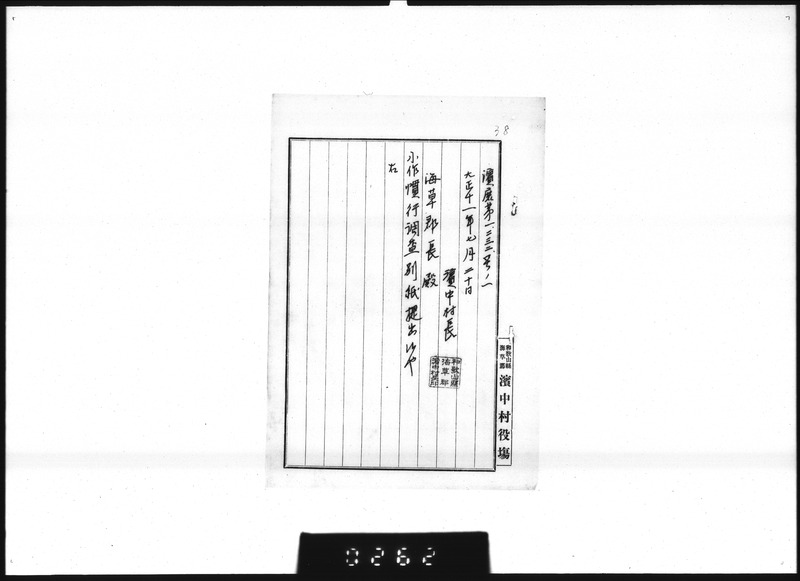 38
濱庶第一、二三二号ノ一
大正十一年七月二十日
濱中村長
和歌山縣
海草郡
濱中村長印
海草郡長殿
小作慣行調査別紙提出候也
右
和歌山縣
海草郡
濱中村役塲
0262